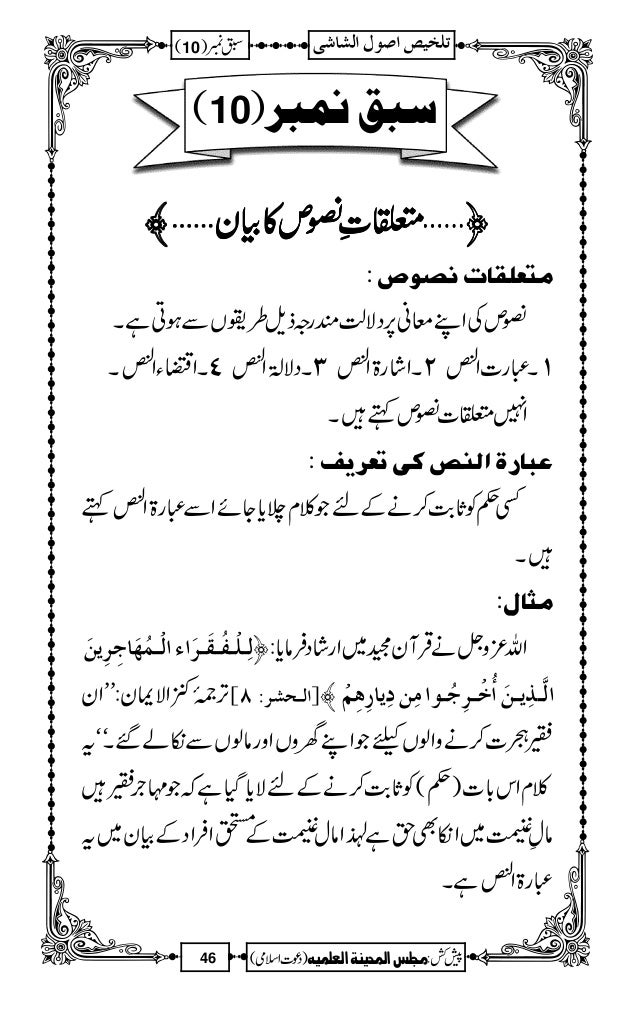 تلخیص اصول الشاشی
سبق نمبر (10)
سبق نمبر (10)
......متعلقاتِ نصوص کا بیان......
متعلقات نصوص :
نصوص کی اپنے معانی پر دلالت مندرجہ ذیل طریقوں سے ہوتی ہے۔
۱۔عبارت النص ۲۔اشارۃ النص ۳۔دلالۃ النص ٤۔اقتضاء النص۔
انہیں متعلقات نصوص کہتے ہیں۔
عبارۃ النص کی تعریف :
کسی حکم کو ثابت کرنے کے لئے جو کلام چلایا جائے اسے عبارۃ النص کہتے
ہیں۔
مثال:
اللہ عزوجل نے قرآن مجید میں ارشاد فرمایا: ﴿لِلْفُقَرَاء الْمُهَاجِرِينَ
الَّذِينَ أُخْرِجُوا مِن دِيارِهِمْ ﴾[الحشر: ٨]ترجمۂ کنز الایمان:’’ان
فقیر ہجرت کرنے والوں کیلئے جو اپنے گھروں اور مالوں سے نکالے گئے۔‘‘ یہ
کلام اس بات (حکم) کو ثابت کرنے کے لئے لایا گیا ہے کہ جو مہاجر فقیر ہیں
مالِ غنیمت میں انکا بھی حق ہے لہذا مال غنیمت کے مستحق افراد کے بیان میں یہ
عبارۃ النص ہے۔
پیش کش: مجلس المدینۃ العلمیہ (دعوت اسلامی)
46